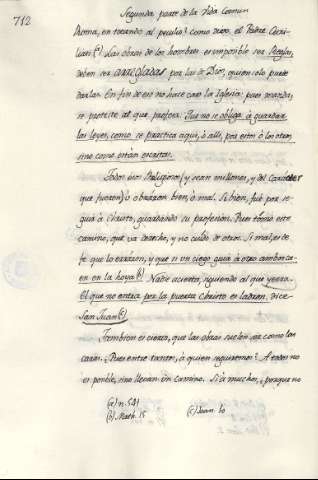 712
Segunda parte de la Vida Comun
Roma, en tocando al peculio) como otros, el Padre
lian(a). Las obras de los hombres es imposible ser Reglas,
deben ser arregladas por las de Dios, quien solo puede
darlas. En fin de eso no hace caso la Iglesia; pues manda,
se proteste al que profesa: Que no se obliga à guardar
las leyes, como se practica aqui, ò alli, por estos ò los otros,
sino como están escritas.
Todos esos Religiosos (y sean millones, y del Caracter
que fueren) ò obraron bien, ò mal. Si bien, fué por se-
guir à Christo, guardando su profesion. Pues tómo este
camino, que va derecho, y no cuido de otros. Si mal, es de
fe que lo erraron, y que si un ciego guia à otro ambos ca-
en en la hoya(b). Nadie acierta, siguiendo al que yerra.
El que no entra por la puerta Christo es ladron, dice
San Juan(c).
Tambien es cierto, que las obras suelen ser como las
caras. Pues entre tantos, à quien seguiremos? A todos no
es posible, sino llevan un camino. Si à muchos, ¿porque no
(a) n. 541
(b) Math. 15
(c) Joan. 10